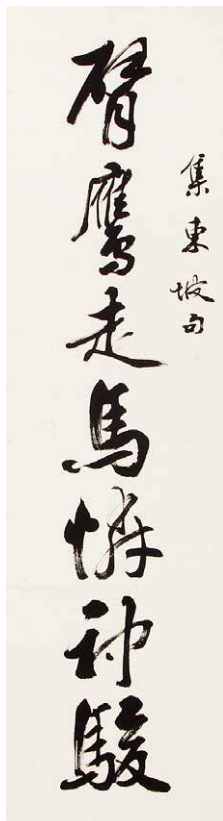 集東坡句
臂鷹走馬憐神駿